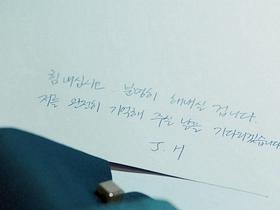 힘내십시오. 분명히 해내실 겁니다.
저를 완전히 기억해 주실 날을 기다리겠습니다
J. H